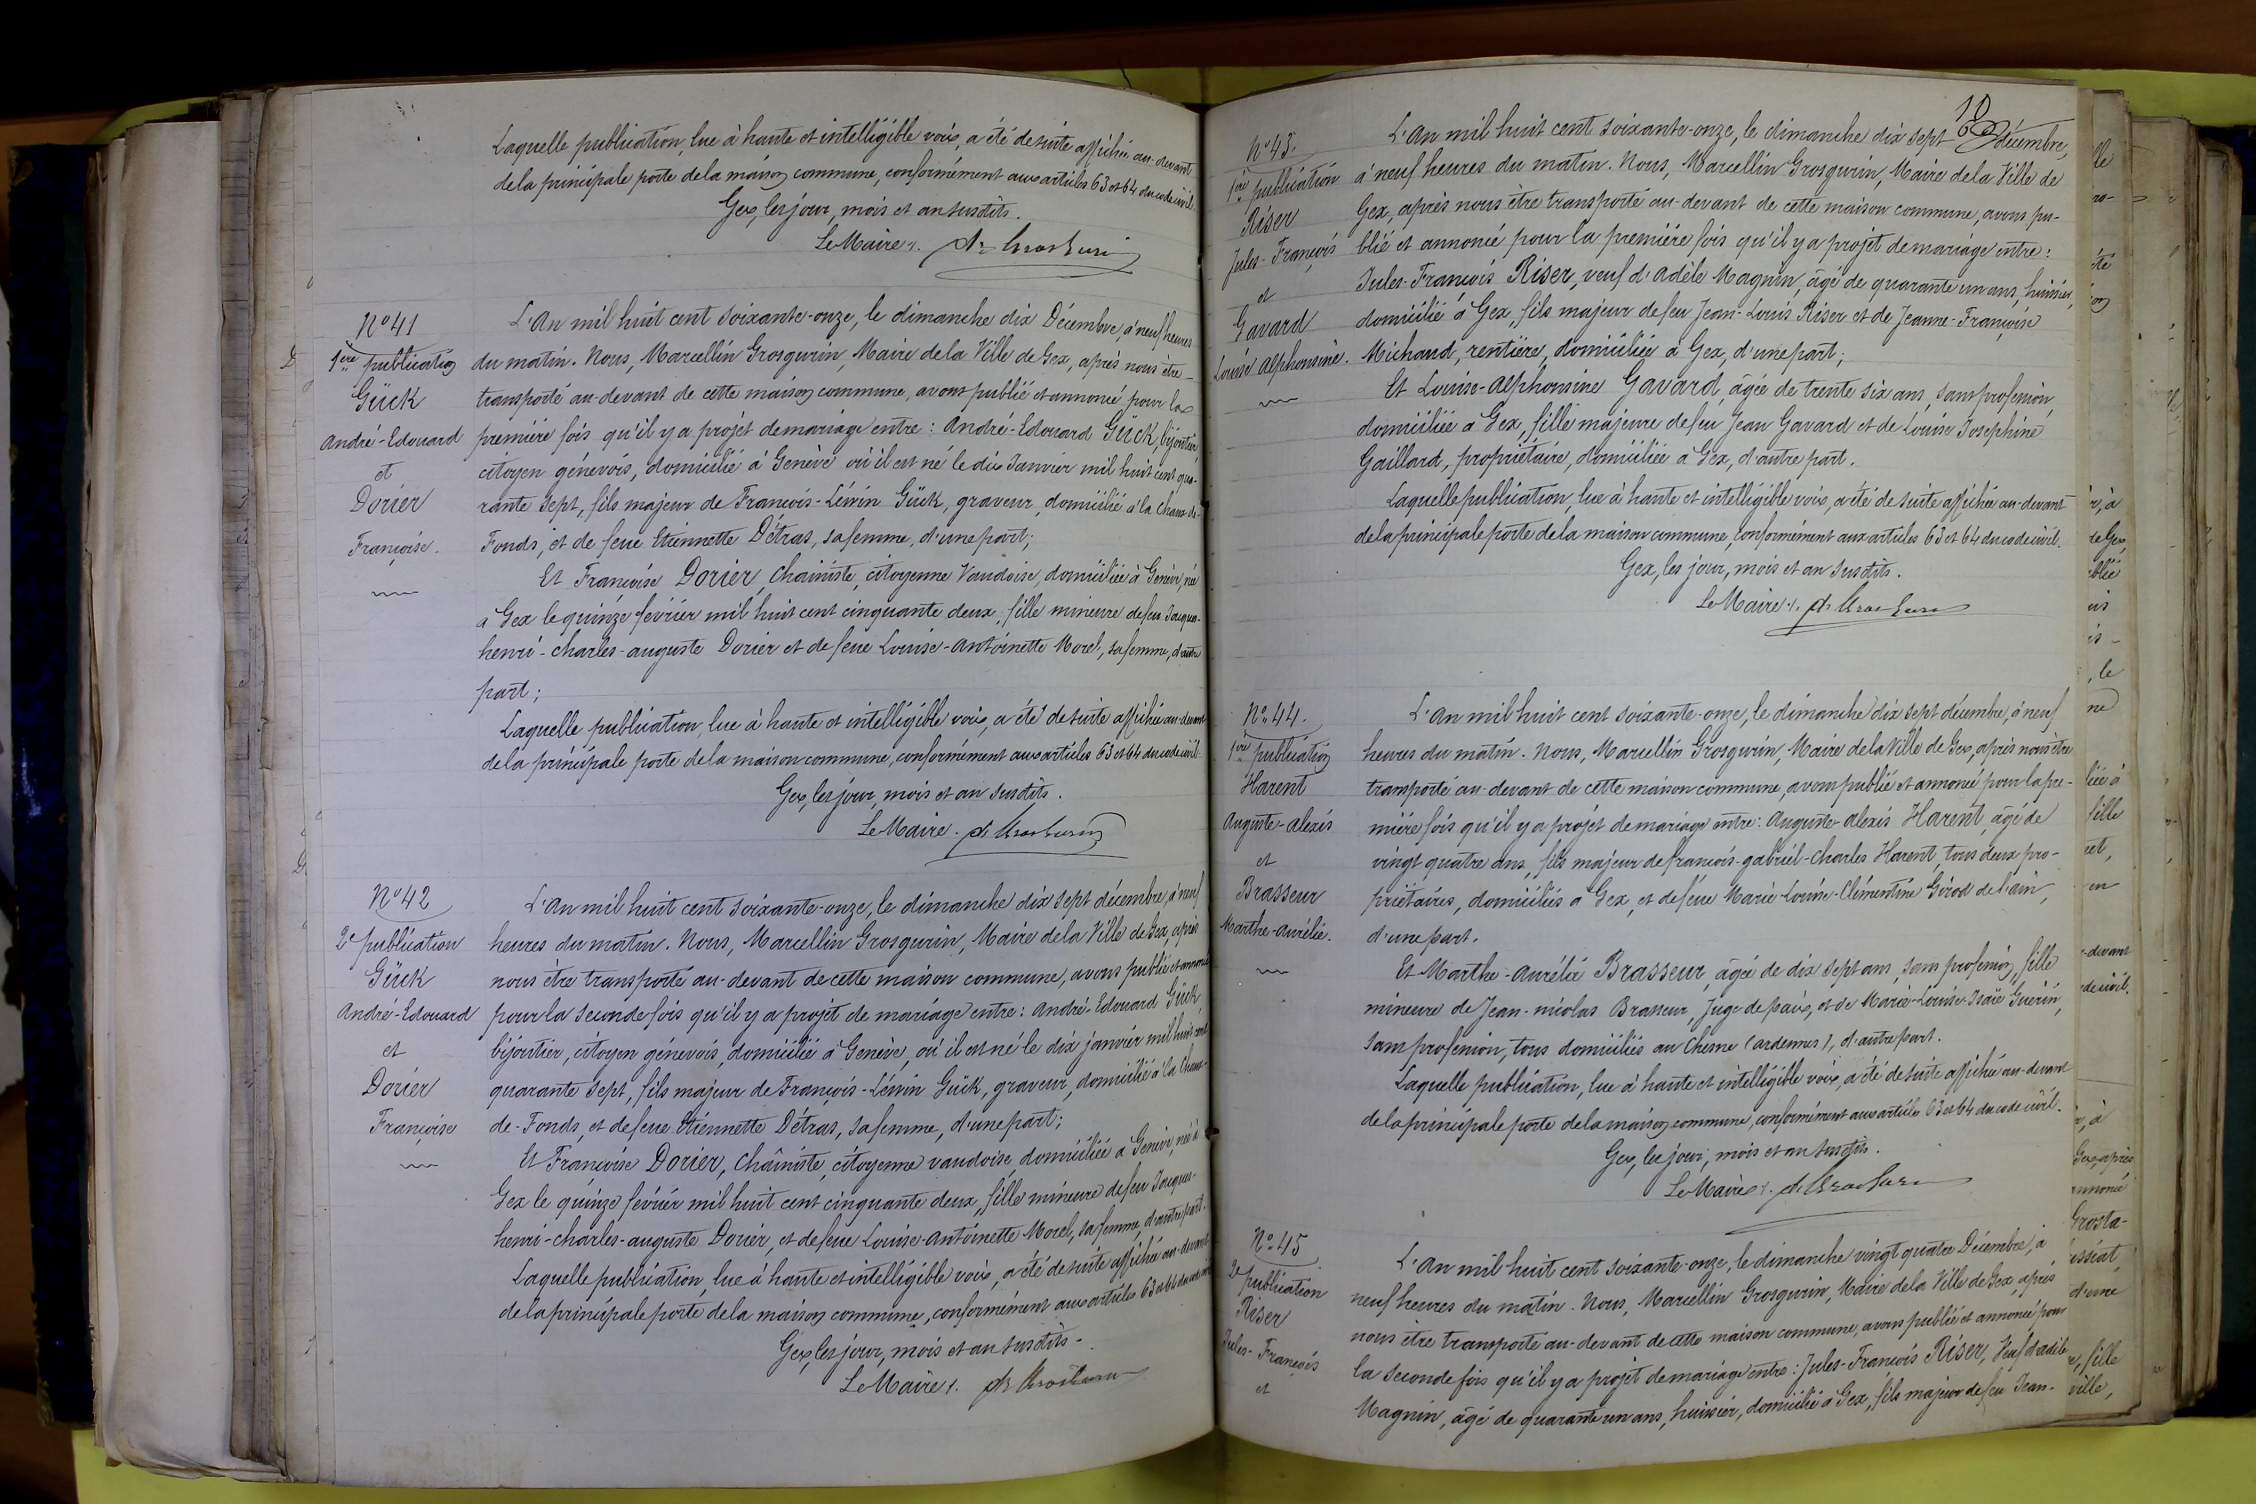 Laquelle publication, lue à haute et intelligible voix, a été de suite affichée au-devant
de la principale porte de la maison commune, conformément aux articles 63 et 64 du code civil.
Gex, les jour, mois et an susdits.
Le Maire.
N° 41
1ère publication
Gück
André-Edouard
et
Dorier
Françoise.
L'An mil huit cent soixante-onze, le dimanche dix Décembre, à neuf heures
du matin. Nous, Marcellin Grosgurin, Maire de la Ville de Gex, après nous être
transporté au-devant de cette maison commune, avons publié et annoncé pour la
première fois qu'il y a projet de mariage entre : André-Edouard Gück, bijoutier,
citoyen génevois, domicilié à Genève où il est né le dix Janvier mil huit cent qua-
rante sept, fils majeur de François-Léwin Gück, graveur, domicilié à la Chaux-de-
Fonds, et de feue Etiennette Détras, sa femme, d'une part;
Et Françoise Dorier, chainiste, citoyenne Vaudoise, domiciliée à Genève, née
à Gex le quinze février mil huit cent cinquante deux, fille mineure de feu Jacques-
henri-charles-auguste Dorier et de feue Louise-antoinette Morel, sa femme, d'autre
part;
Laquelle publication, lue à haute et intelligible voix, a été de suite affichée au-devant
de la principale porte de la maison commune, conformément aux articles 63 et 64 du code civil.
Gex, les jour, mois et an susdits.
Le Maire.
N° 42
2e publication
Gück
André-Edouard
et
Dorier
Françoise
L'An mil huit cent soixante-onze, le dimanche dix sept décembre, à neuf
heures du matin. Nous, Marcellin Grosgurin, Maire de la Ville de Gex, après
nous être transporté au-devant de cette maison commune, avons publié et annoncé
pour la seconde fois qu'il y a projet de mariage entre : André-Edouard Gück
bijoutier, citoyen génevois, domicilié à Genève, où il est né le dix janvier mil huit cent
quarante sept, fils majeur de François-Léwin Gück, graveur, domicilié à la Chaux-
de-Fonds, et de feue Etiennette Détras, sa femme, d'une part;
Et Françoise Dorier, chaîniste, citoyenne vaudoise domiciliée à Genève, née à
Gex le quinze février mil huit cent cinquante deux, fille mineure de feu Jacques-
henri-charles-auguste Dorier, et de feue Louise-antoinette Morel, sa femme, d'autre part.
Laquelle publication, lue à haute et intelligible voix, a été de suite affichée au-devant
de la principale porte de la maison commune, conformément aux articles 63 et 64 du code civil
Gex, les jour, mois et an susdits.
Le Maire.
N° 43.
1ère publication
Riser
Jules-François
et
Gavard
Louise alphonsine.
L'An mil huit cent soixante-onze, le dimanche dix sept décembre,
à neuf heures du matin. Nous, Marcellin Grosgurin, Maire de la Ville de
Gex, après nous être transporté au-devant de cette maison commune, avons pu-
blié et annoncé pour la première fois qu'il y a projet de mariage entre :
Jules-François Riser, veuf d'adèle Magnin, âgé de quarante un ans, huissier,
domicilié à Gex, fils majeur de feu Jean-Louis Riser et de Jeanne-Françoise
Michaud, rentière, domiciliée à Gex, d'une part;
Et Louise-alphonsine Gavard, âgée de trente six ans, sans profession,
domiciliée à Gex, fille majeure de feu Jean Gavard et de Louise Josephine
Gaillard, propriétaire, domiciliée à Gex, d'autre part.
Laquelle publication, lue à haute et intelligible voix, a été de suite affichée au-devant
de la principale porte de la maison commune, conformément aux articles 63 et 64 du code civil.
Gex, les jour, mois et an susdits.
Le Maire.
N° 44.
1ère publication
Harent
Auguste-alexis
et
Brasseur
Marthe-aurélie.
L'An mil huit cent soixante-onze, le dimanche dix sept décembre, à neuf
heures du matin. Nous, Marcellin Grosgurin, Maire de la Ville de Gex, après nous être
transporté au-devant de cette maison commune, avons publié et annoncé pour la pre-
mière fois qu'il y a projet de mariage entre : Auguste-alexis Harent, âgé de
vingt quatre ans, fils majeur de françois-gabriel-charles Harent, tous deux pro-
priétaires, domiciliés à Gex, et de feue Marie-Louise-Clémentine Girod de l'ain,
d'une part.
Et Marthe-aurélie Brasseur, âgée de dix sept ans, sans profession, fille
mineure de Jean-nicolas Brasseur, Juge de paix, et de Marie-Louise-Isaïe Guérin,
sans profession, tous domiciliés au Chesne (ardennes), d'autre part.
Laquelle publication, lue à haute et intelligible voix, a été de suite affichée au-devant
de la principale porte de la maison commune, conformément aux articles 63 et 64 du code civil.
Gex, les jour, mois et an susdits.
Le Maire.
N° 45
2e publication
Riser
Jules-François
et
L'An mil huit cent soixante-onze, le dimanche vingt quatre Décembre, à
neuf heures du matin. Nous, Marcellin Grosgurin, Maire de la Ville de Gex, après
nous être transporté au-devant de cette maison commune, avons publié et annoncé pour
la seconde fois qu'il y a projet de mariage entre : Jules-François Riser, Veuf d'adèle
Magnin, âgé de quarante un ans, huissier, domicilié à Gex, fils majeur de feu Jean-